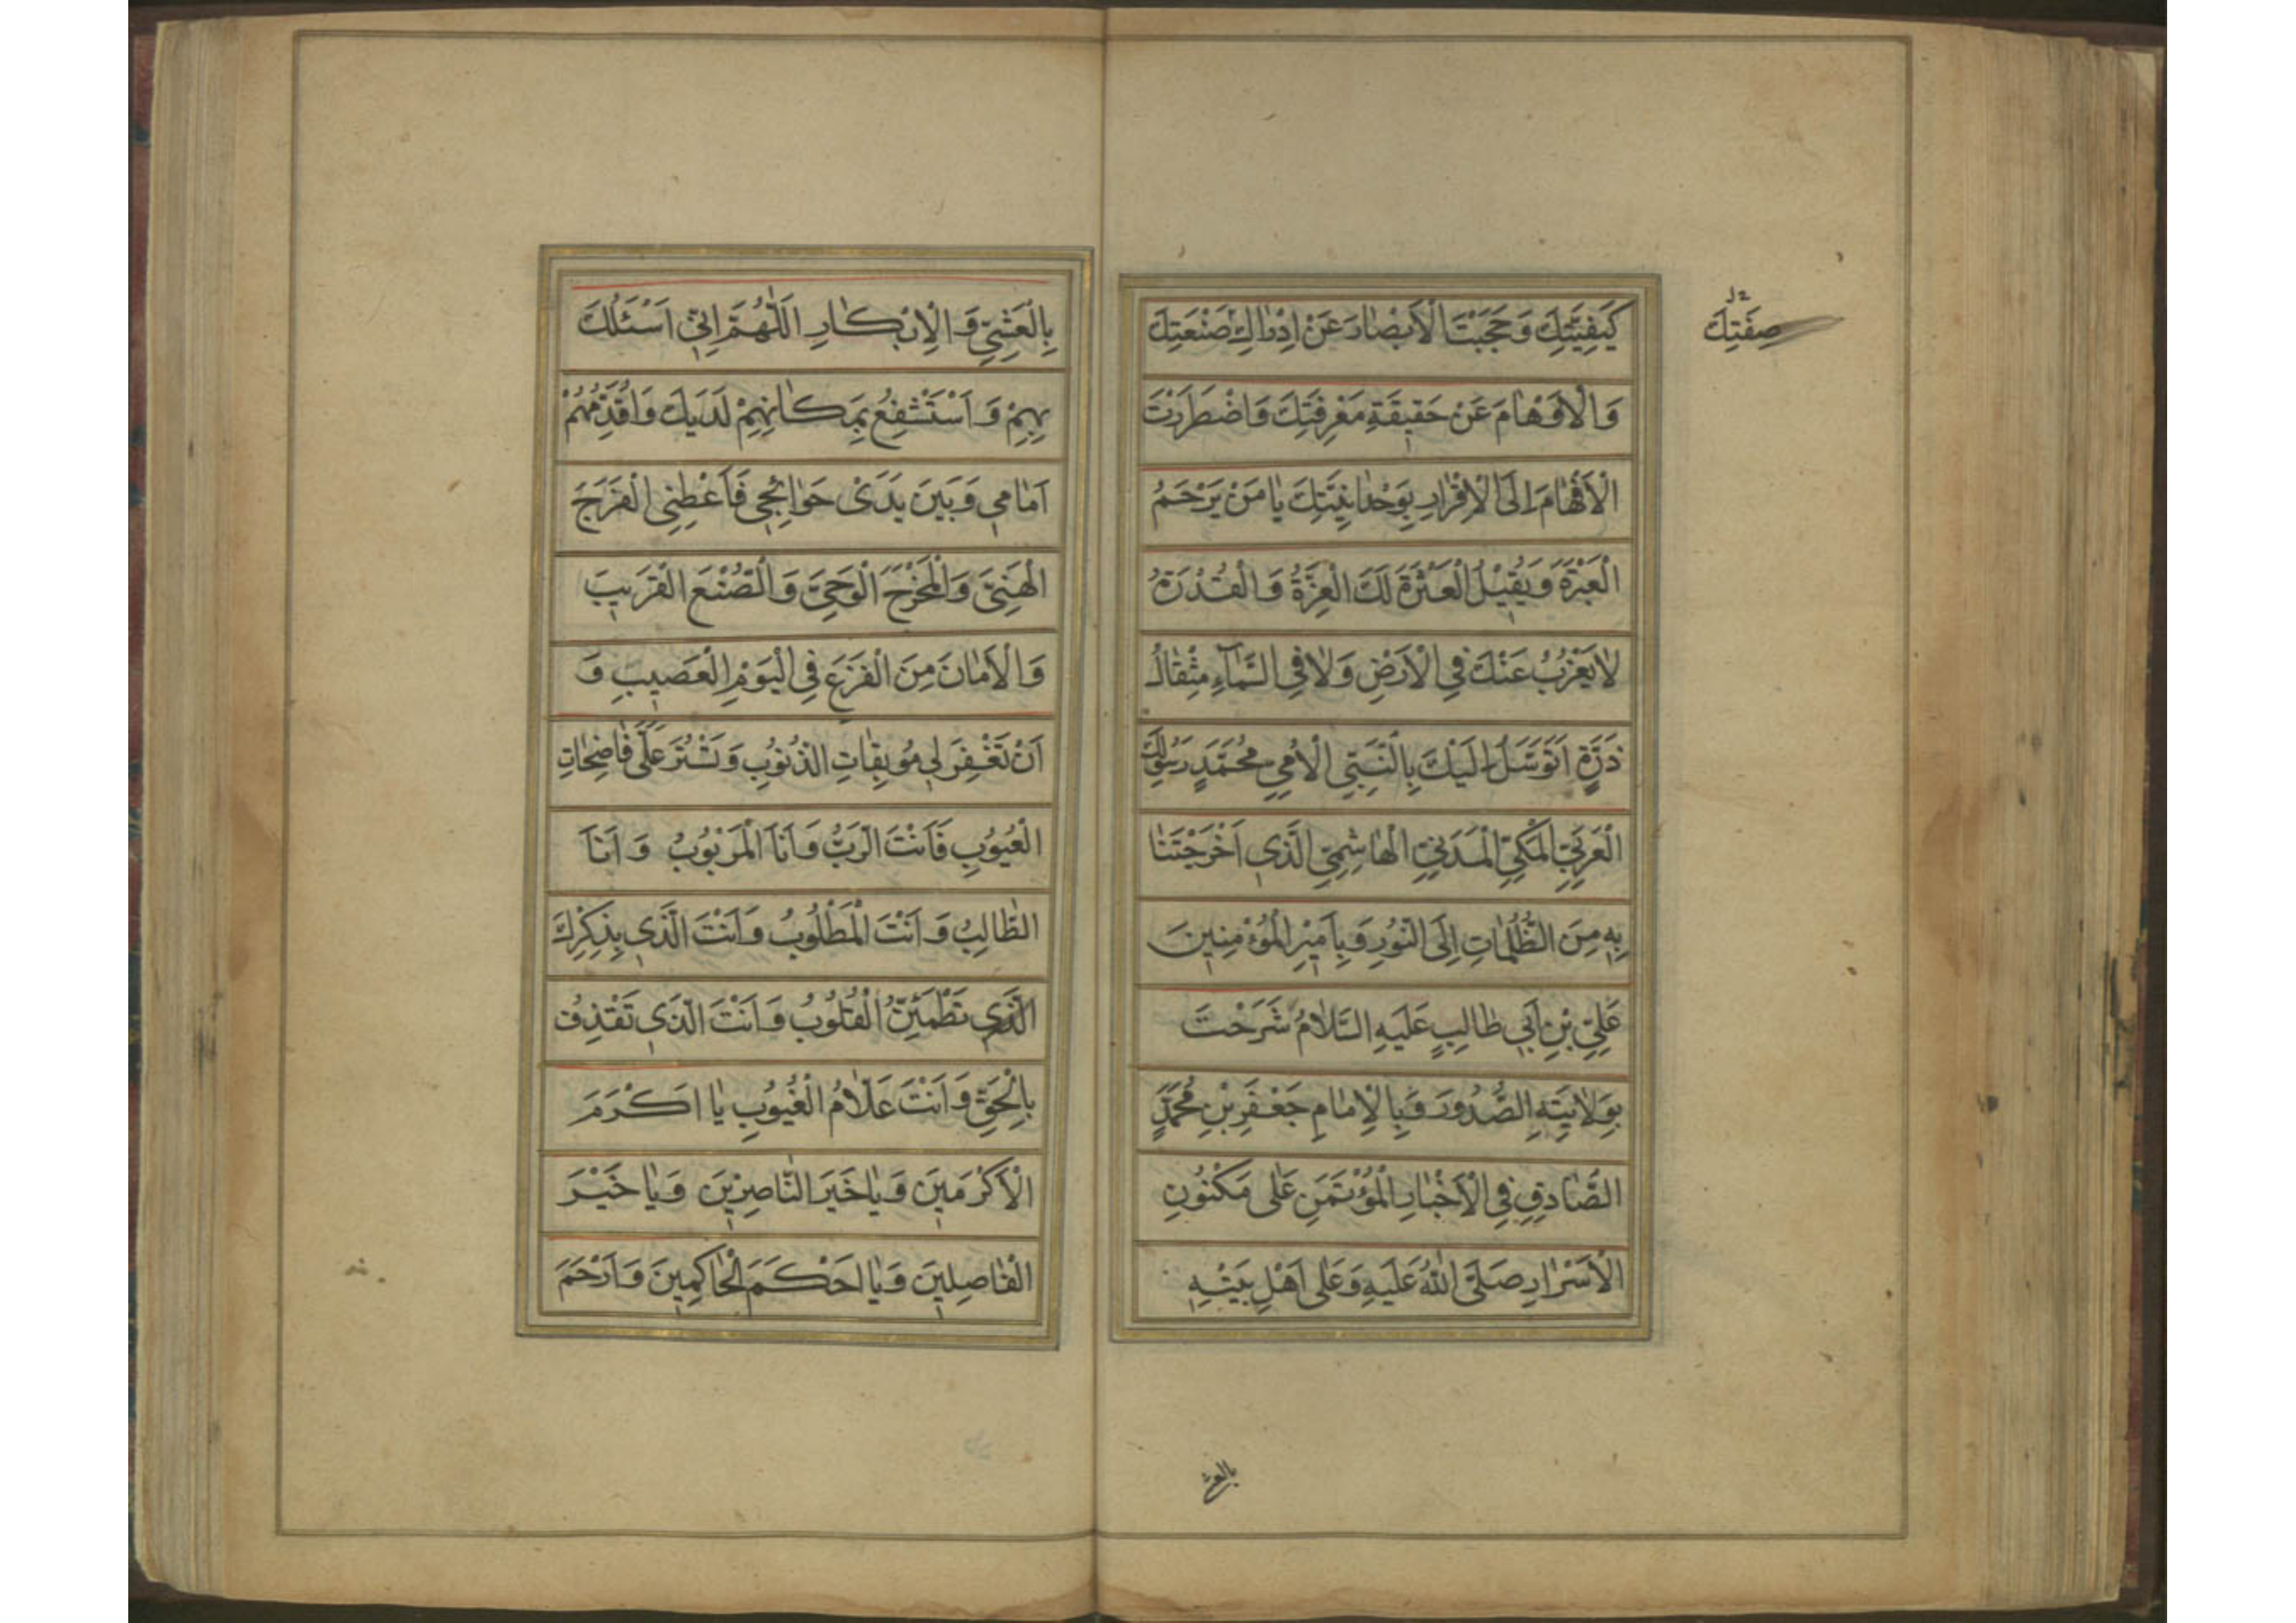 كَيْفِيَّتِكَ وَحَجَبْتَ الْاَبْصٰارَ عَنْ اِدْرٰاكِ صَنْعَتِكَ
صِفَتِكَ
وَالْاَوْهٰامَ عَنْ حَقيقَةِ مَعْرِفَتِكَ وَاضْطَرَرْتَ
الْاَفْهٰامَ اِلَى الْاِقْرٰارِ بِوَحْدٰانِيَّتِكَ يٰا مَنْ يَرْحَمُ
الْعَبْرَةَ وَيُقيلُ الْعَثْرَةَ لَكَ الْعِزَّةُ وَالْقُدْرَةُ
لٰا يَعْزُبُ عَنْكَ فِي الْاَرْضِ وَلٰا فِي السَّمٰآءِ مِثْقٰالُ
ذَرَّةٍ اَتَوَسَّلُ اِلَيْكَ بِالنَّبِيِّ الْاُمِّيِّ مُحَمَّدٍ رَسُولِكَ
الْعَرَبِيِّ الْمَكِّيِّ الْمَدَنِيِّ الْهٰاشِمِيِّ الَّذي اَخْرَجْتَنٰا
بِهِ مِنَ الظُّلُمٰاتِ اِلَى النُّورِ وَبِاَميرِ الْمُؤْمِنينَ
عَلِيِّ بْنِ اَبي طٰالِبٍ عَلَيْهِ السَّلٰامُ شَرَحْتَ
بِوِلٰايَتِهِ الصُّدُورَ وَبِالْاِمٰامِ جَعْفَرِ بْنِ مُحَمَّدٍ
الصَّادِقِ فِي الْاَخْبٰارِ الْمُؤْتَمَنِ عَلٰى مَكْنُونِ
الْاَسْرٰارِ صَلَّى اللّٰهُ عَلَيْهِ وَعَلٰى اَهْلِ بَيْتِهِ
بالعشي
بِالْعَشِيِّ وَالْاِبْكٰارِ اَللّٰهُمَّ اِنّي اَسْئَلُكَ
بِهِمْ وَاَسْتَشْفِعُ بِمَكٰانِهِمْ لَدَيْكَ وَاُقَدِّمُهُمْ
اَمٰامي وَبَيْنَ يَدَىْ حَوٰائِجي فَاَعْطِنِى الْفَرَجَ
الْهَنِىَّ وَالْمَخْرَجَ الْوَحِىَّ وَالصُّنْعَ الْقَريبَ
وَالْاَمٰانَ مِنَ الْفَزَعِ فِي الْيَوْمِ الْعَصيبِ وَ
اَنْ تَغْفِرَ لي مُوبِقٰاتِ الذُّنُوبِ وَتَسْتُرَ عَلَىَّ فٰاضِحٰاتِ
الْعُيُوبِ فَاَنْتَ الرَّبُّ وَاَنَا الْمَرْبُوبُ وَاَنَا
الطّٰالِبُ وَاَنْتَ الْمَطْلُوبُ وَاَنْتَ الَّذي بِذِكْرِكَ
الَّذي تَطْمَئِنُّ الْقُلُوبُ وَاَنْتَ الَّذي تَقْذِفُ
بِالْحَقِّ وَاَنْتَ عَلّٰامُ الْغُيُوبِ يٰا اَكْرَمَ
الْاَكْرَمينَ وَيٰا خَيْرَ النّٰاصِرينَ وَيٰا خَيْرَ
الْفٰاصِلينَ وَيٰا اَحْكَمَ الْحٰاكِمينَ وَاَرْحَمَ